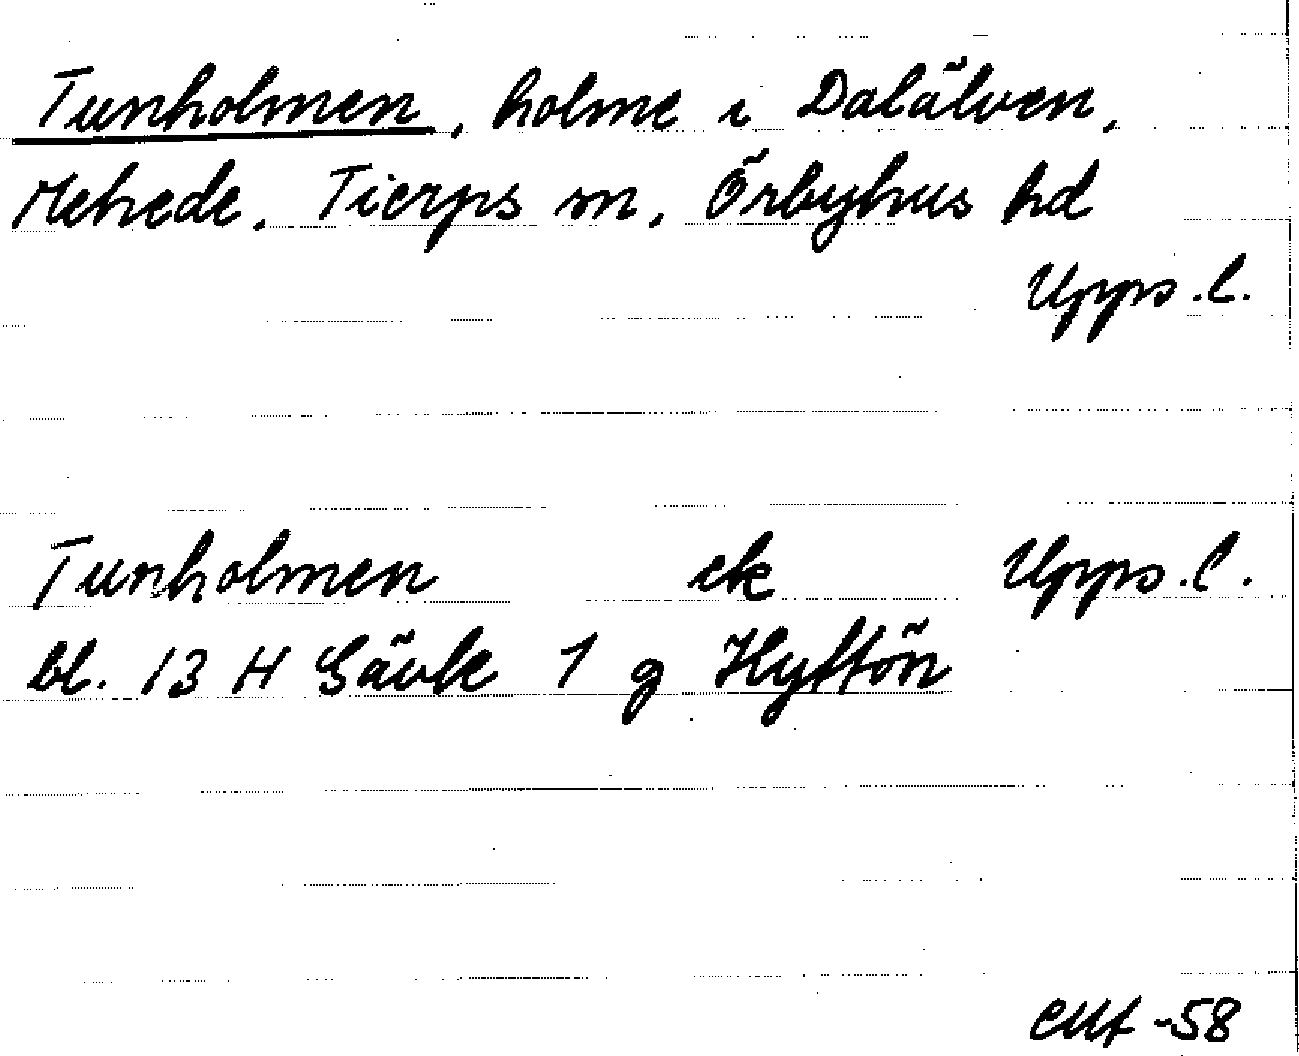 Tunholmen, holme i Dalälven,
Mehede. Tierps sn, Örbyhus hd
Upps. l.
Tunholmen ek Upps. l.
bl. 13 H Gävle 1 g Hyttön
-58